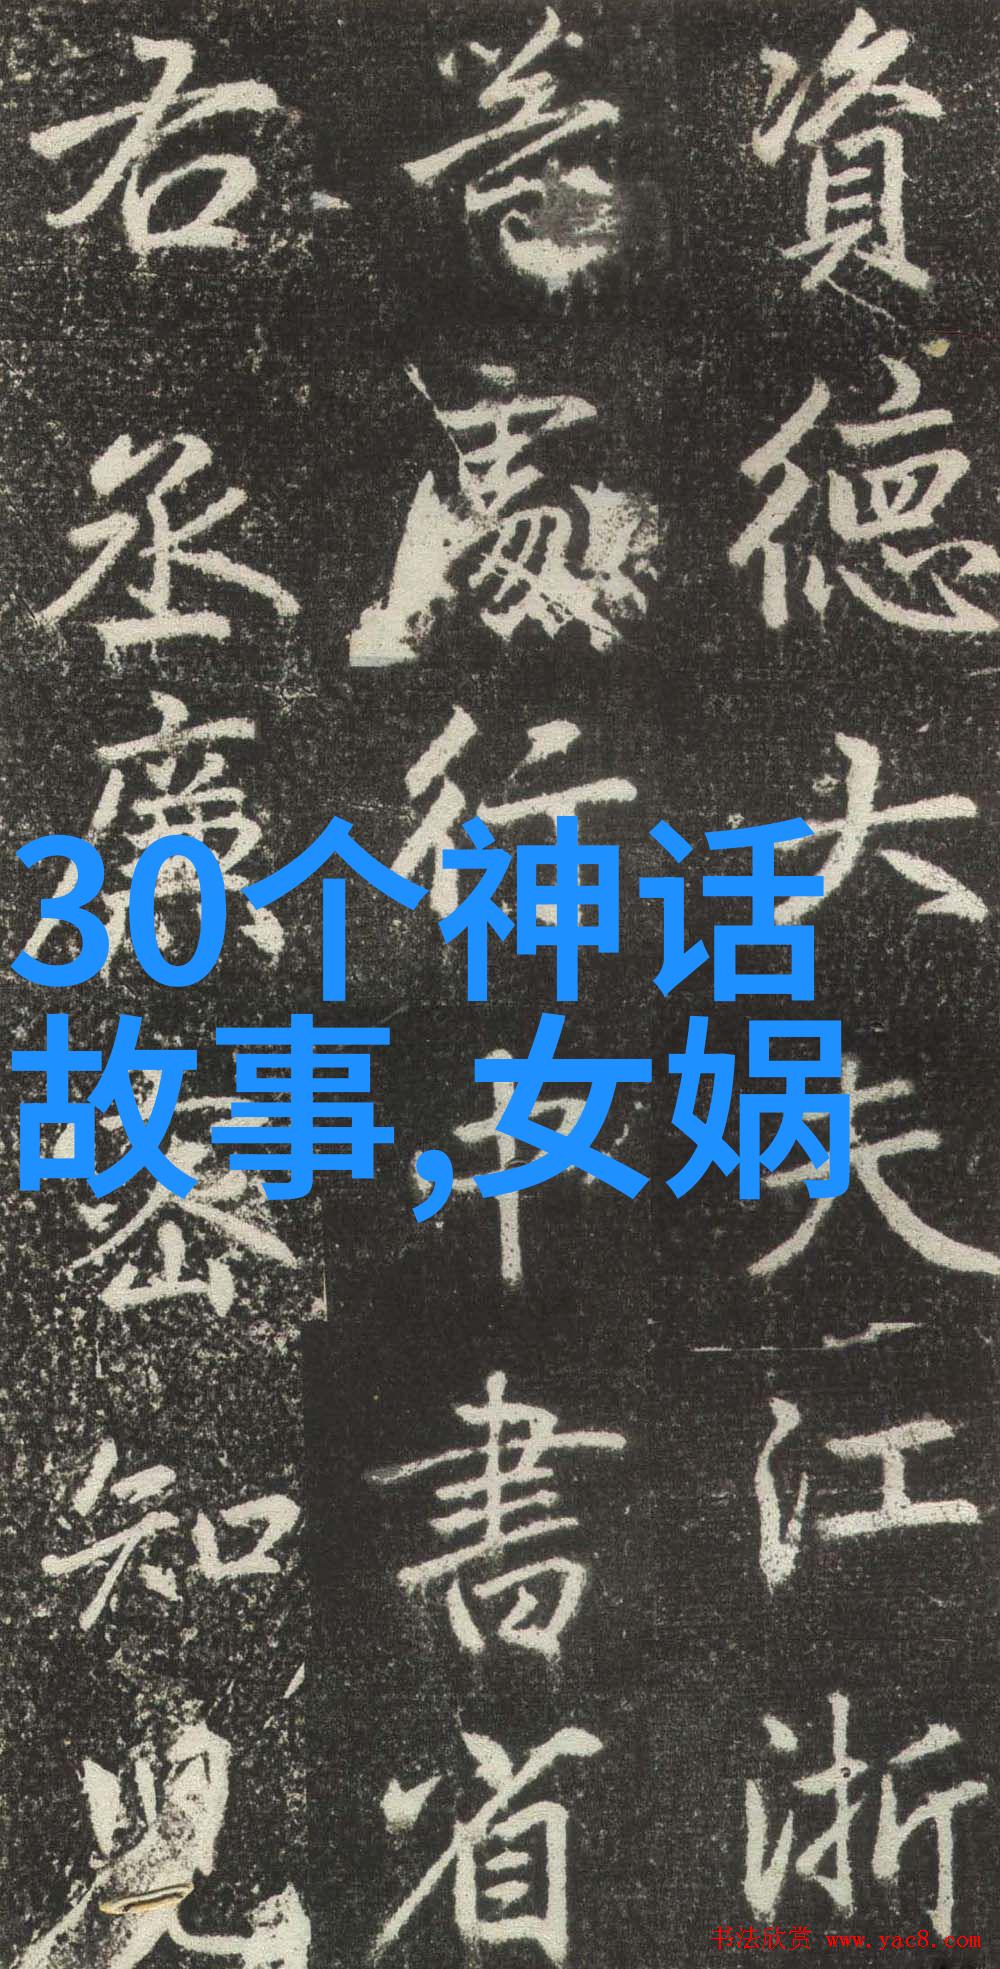 資德大夫江浙
等處行中書省
右丞廉密知兒
30个神话
故事,女娲
书法欣赏 www.yac8.com